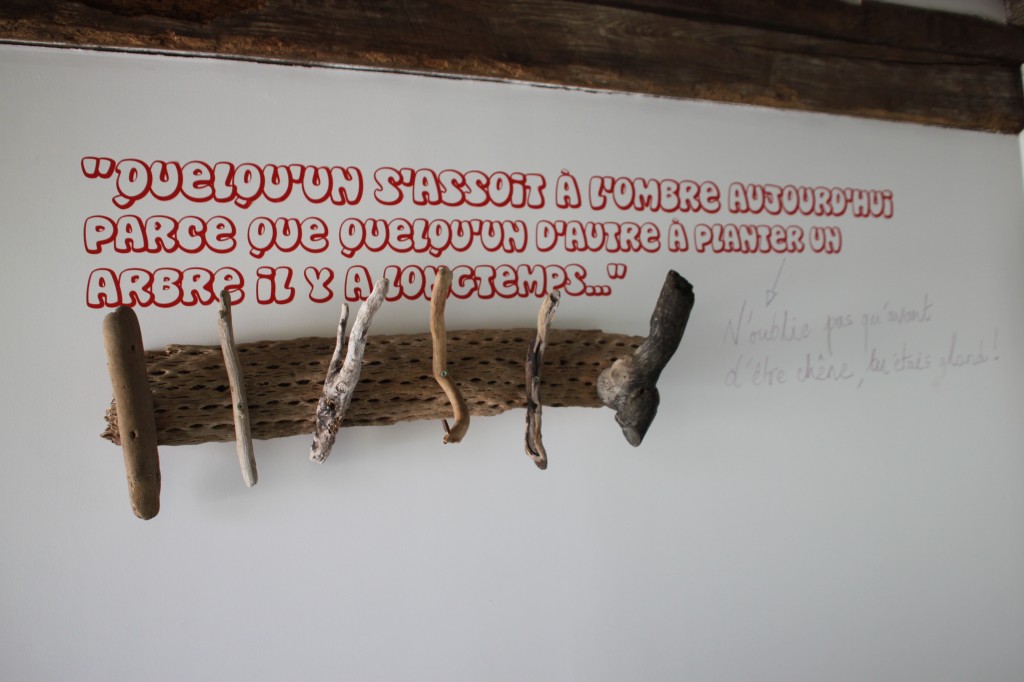 "QUELQU'UN S'ASSOIT À L'OMBRE AUJOURD'HUI
PARCE QUE QUELQU'UN D'AUTRE À PLANTER UN
ARBRE IL Y A LONGTEMPS..."
N'oublie pas qu'avant
d'être chêne, tu étais gland !